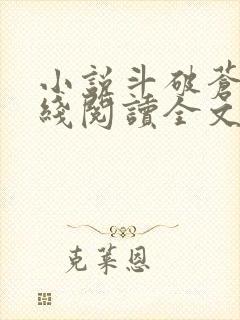 小説斗破蒼
綫閱讀全文
克莱恩